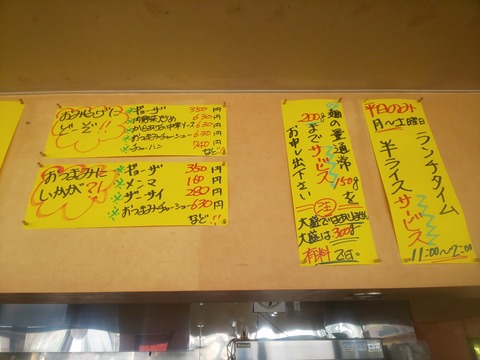 おみやげに
どーぞ!!
※ギョーザ 350円
※肉野菜炒め 630円
※からあげの中華ソース 630円
※おつまみチャーシュー 630円
※チャーハン 740円
など!!
おつまみに
いかが?!
※ギョーザ 350円
※メンマ 160円
※ザーサイ 280円
※おつまみチャーシュー 630円
など!!
※麺の量通常150gを
200gまでサービス
お申し出下さい
注
大盛ではありません
大盛は300g
有料です。
平日のみ
月〜土曜日
ランチタイム
半ライスサービス
11:00〜2:00